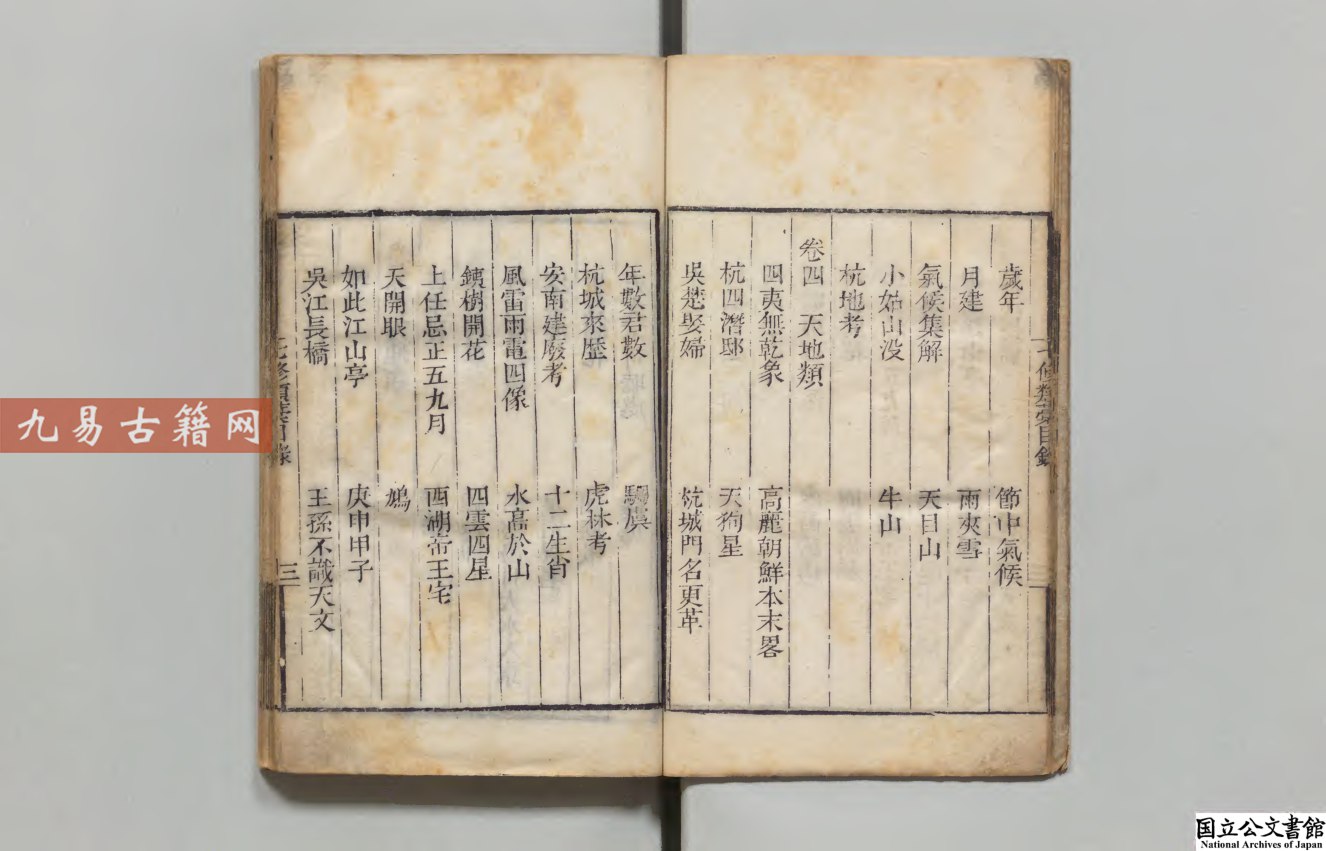 歲年 節中氣候
月建 雨夾雪
氣候集解 天目山
小姑山没 牛山
杭地考
卷四 天地類
四夷無乾象 高麗朝鮮本末畧
杭四潛邸 天狗星
吳楚娶婦 杭城門名更革
年數君數 騶虞
杭城來歷 虎林考
安南建廢考 十二生肖
風雷雨電四像 水高於山
鐵樹開花 四雲四星
上任忌正五九月 西湖岳王宅
天開眼 鴆
如此江山亭 庚申甲子
吳江長橋 王孫不識天文
七修類稾目錄
三
九易古籍网
国立公文書館
National Archives of Japan